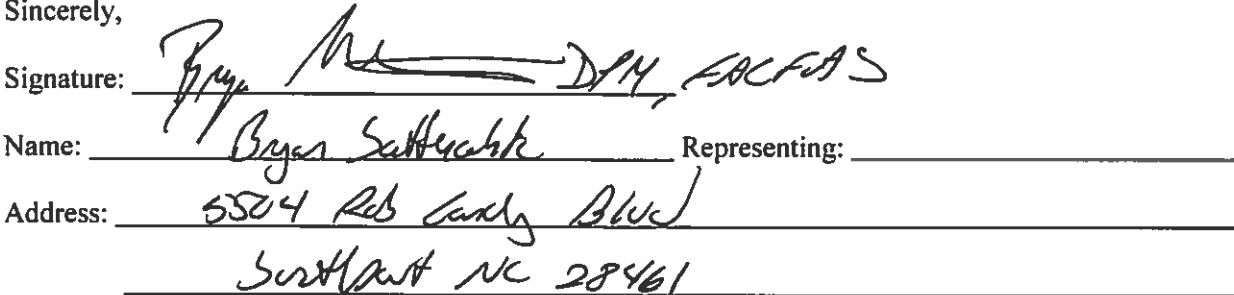 Sincerely,
Signature: DPM, FACFAS
Name: Bryan Representing:
Address: 5504 Blvd
Southport NC 28461